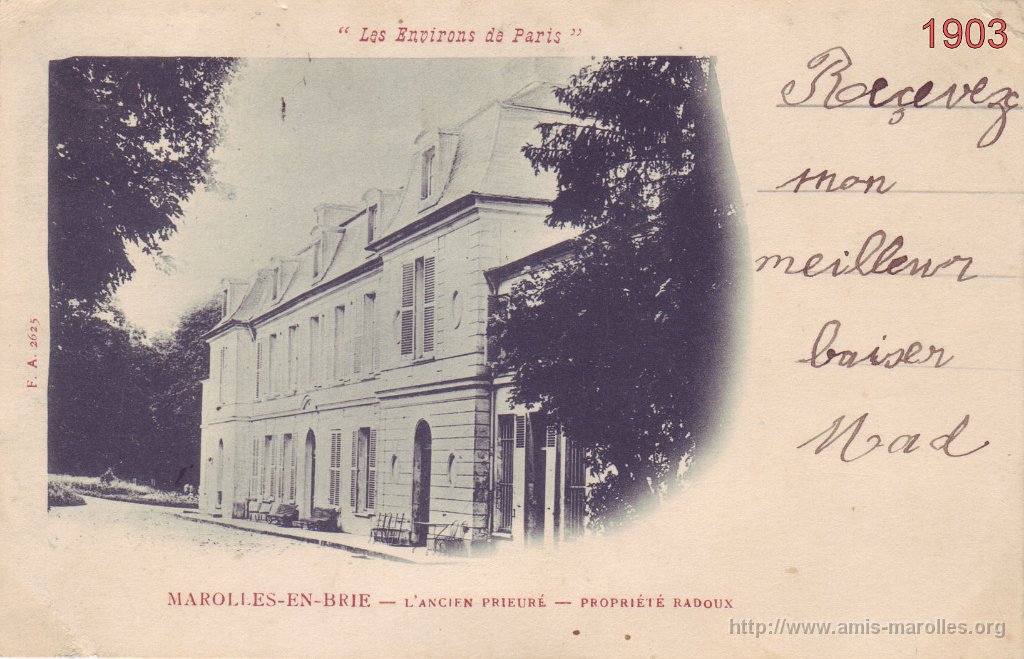 “ Les Environs de Paris ”
1903
Reçevez
mon
meilleur
baiser
Mad
F. A. 2625
MAROLLES-EN-BRIE — L'ANCIEN PRIEURÉ — PROPRIÉTÉ RADOUX
http://www.amis-marolles.org